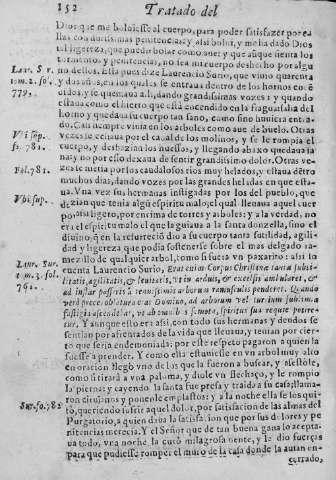 152 Tratado del
Dios que me boluiesse al cuerpo, para poder satisfazer por ea
llas con durissimas penitencias y assi bolui, y me ha dado Dios
tal ligereza, que puedo bolar como aue: y que aũque siẽta los
tormentos y penitencias, no sea mi cuerpo deshecho por algu
Laur. Sr. no dellos. Esta pues dize Laurencio Surio, que viuio quarenta
tom. 2. fol. y dos años, en los quales se entraua dentro de los hornos encẽ
779. didos, y que se assaua alli, dando grandissimas vozes: y quando
estaua como el hierro que està encendido en la fragua salia del
horno y quedaua su cuerpo tan sano, como sino huuiera entra
do. Casi siempre viuia en los arboles como aue de buelo. Otras
Vbi sup. vezes se metia por el canal de los molinos, y se le rompia el
fo. 781. cuerpo, y deshazian los huessos, y llegando abaxo quedaua sa
na: y no por esso dexaua de sentir grandissimo dolor. Otras ve-
Fol. 781. zes se metia por los caudalosos rios muy helados, y estaua dẽtro
muchos dias, dando vozes por las grandes heladas en que esta-
Vbi sup. ua. Vna vez sus hermanas instigadas por los del pueblo, que
dezian que tenia algũ espiritu malo, el qual lleuaua aquel cuer
po, assi ligero, por encima de torres y arboles: y a la verdad, no
era el espiritu malo el que guiaua a la santa donzella, sino el
diuino, q̃ en la resurrecciõ dio a su cuerpo tanta sutilidad, agili-
dad y ligereza que podia sostenerse sobre el mas delgado ra-
Laur. Sur. mezillo de qualquier arbol, como si fuera vn paxarito: assi lo
tom. 3. fol. cuenta Laurencio Surio, Erat enim Corpus Christinæ tanta subti-
792. litatis, agilitatis, & leuitatis, vt in arduis, & excelsis ambularet, &
ad instar passeris à tenuissimis arborum ramusculis penderet. Quando
verò precè, oblatura erat Domino, ad arborum vel turrium sublima
fastigia ascendebat, vt ab omnibus semota, spiritus sui requie potire-
tur. Y aunque esto era assi, con todo sus hermanas y deudos se
sentian por afrentados de la vida que llevaua, tenian por cier-
to que seria endemoniada: por este respeto pagaron a quien la
fuesse a prender. Y como ella estuuiesse en vn arbol muy alto
en oracion llegò vno de los que la fueron a buscar, y asiòle,
como si tirarà a vna paloma, y diole vn flechaço, y le rompio
la pierna: y cayendo la santa fue presa y traida a su casa: llama-
ron cirujanos y ponenle emplastos: y a la noche ella se los qui-
Sur. fo. 782 tò, queriendo sufrir aquel dolor, por satisfacion de las almas del
Purgatorio, a quien daua la satisfacion que por sus dolores y pe
nitencias merecia. Y el Señor que de tan buena gana lo acepta-
ua todo, vna noche la curò milagrosa mente, y le dio fuerças
para que pudiesse romper el muro de la casa donde la auian en-
cerrado,